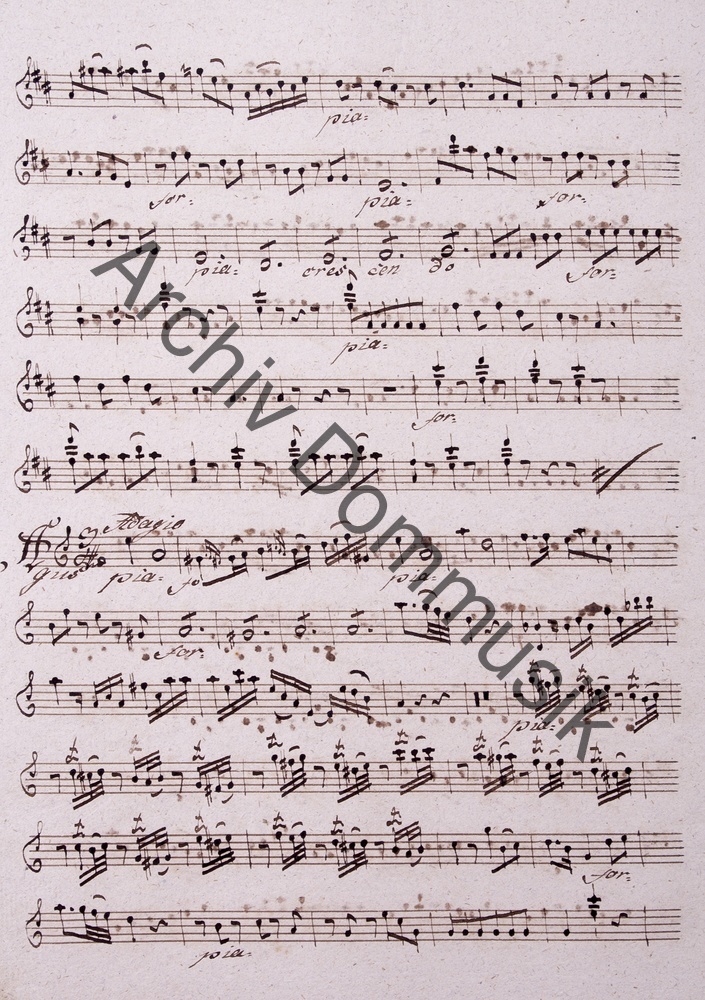 pia:
for: pia: for:
pia: cres cen do for:
pia:
for:
Adagio
gnus pia: fo pia:
for:
pia:
for:
pia:
Archiv Dommusik